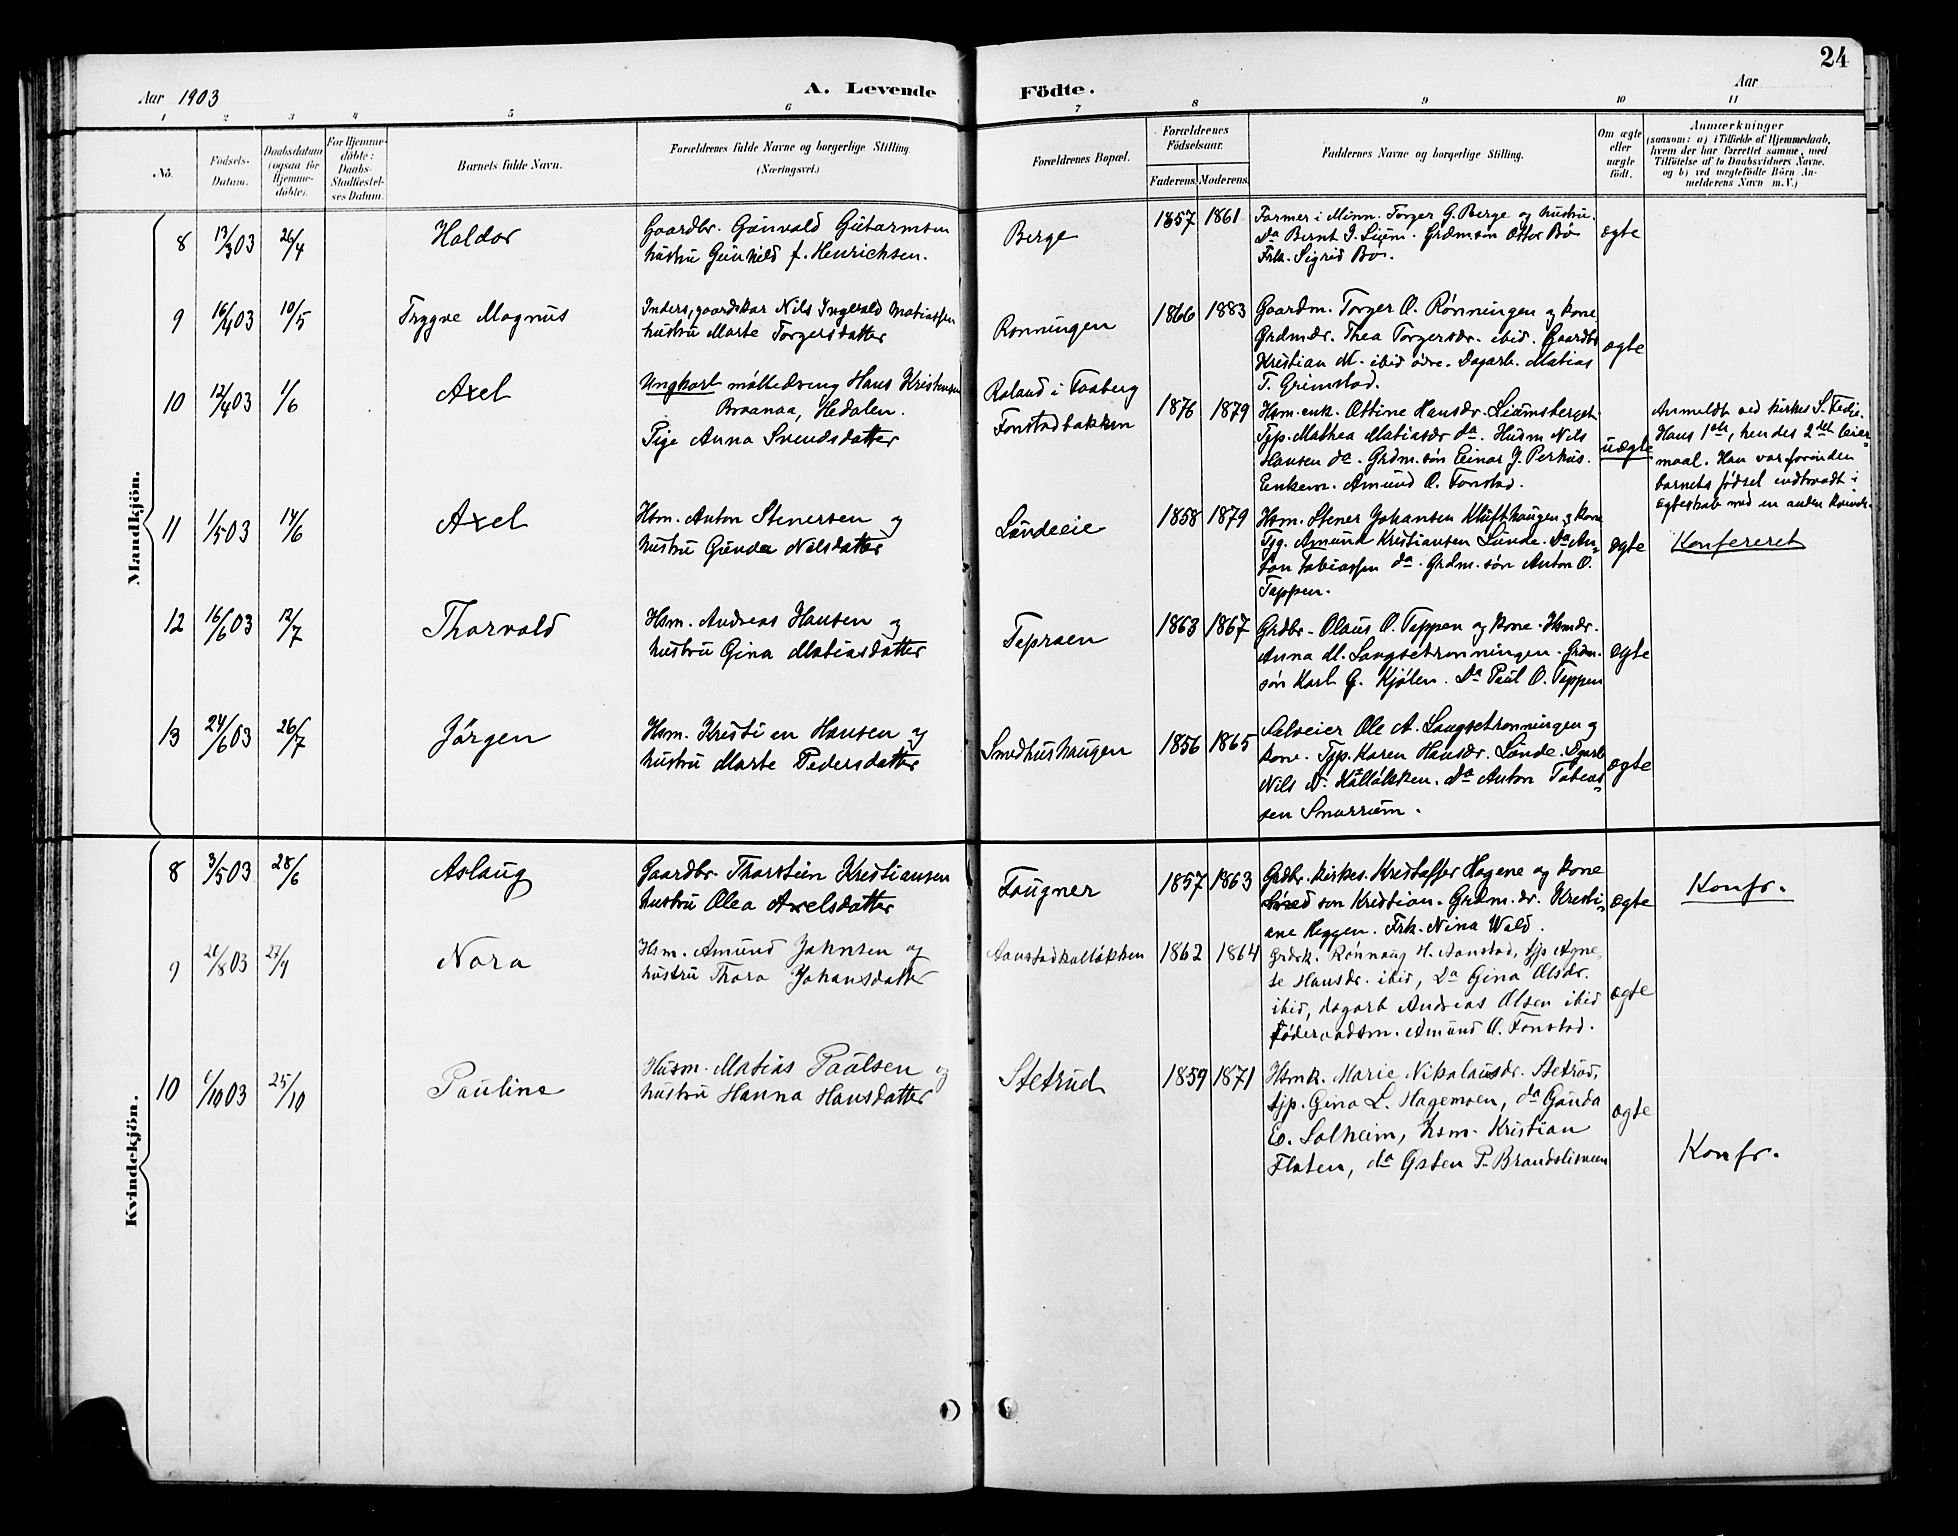 24
Aar 1903
A. Levende Födte.
Aar
1 2 3 4 5 6 7 8 9 10 11
No.
Födsels-
Datum.
Daabsdatum
(ogsaa for
Hjemme-
döbte).
For Hjemme-
döbte:
Daabs-
Stadfæstel-
ses Datum.
Barnets fulde Navn.
Forældrenes fulde Navne og borgerlige Stilling
(Næringsvei.)
Forældrenes Bopæl.
Forældrenes
Födselsaar.
Faderens. Moderens.
Faddernes Navne og borgerlige Stilling.
Om ægte
eller
uægte
födt.
Anmærkninger
(saasom: a) i Tilfælde af Hjemmedaab,
hvem der har forrettet samme, med
Tilföielse af to Daabsvidners Navne.
og b) ved uægtefödte Börn An-
melderens Navn m.V.)
Mandkjön.
8 13/3 03 26/4 Haldor
Gaardbr. Gunvald Gutarmsen
hustru Gunhild f. Henrichsen.
Berge
1857 1861
Farmer i Minn. Torger G. Berge og hustru.
Da Bernt J. Lium. Grdmsøn Otter Bø
Frk. Sigrid Bø.
ægte
9 16/4 03 10/5 Trygve Magnus
Inders, gaardskar Nils Ingevald Matiassen
hustru Marte Torgersdatter
Rønningen
1866 1883
Gaardm. Torger O. Rønningen og kone
Grdmdr. Thea Torgersdr. ibid. Gaardbr
Kristian M. ibid øvre. Dagarb. Matias
T. Grimstad.
ægte
10 12/4 03 1/6 Axel
Ungkarl mølledreng Hans Kristensen
Braanaa, Hedalen.
Pige Anna Svendsdatter
Roland i Faaberg
Fonstadbakken
1876 1879
Hsm.enk. Ottine Hansdr. Liumsberget
Tjp. Mathea Matiasdr da. Husm Nils
Hansen da. Grdm.søn Einar J. Perhus.
Enkem. Amund O. Fonstad.
uægte
Anmeldt ved kirkes S. Fedje.
Hans 1ste, hendes 2det leier-
maal. Han var forinden
barnets fødsel indtraadt i
ægteskab med en anden kvinde.
11 1/5 03 14/6 Axel
Hsm. Anton Stenersen og
hustru Gunda Nilsdatter
Lundeeie
1858 1879
Hsm. Stener Johansen Klufthaugen og kone
Tjg. Amund Kristiansen Lunde. Da An-
ton Tobiassen da. Grdm. søn Anton O.
Tappen.
ægte
Konfereret
12 16/6 03 12/7 Thorvald
Hsm. Andreas Hansen og
hustru Gina Matiasdatter
Tepraen
1863 1867
Grdbr. Olaus O. Teppen og kone. Hsmdr.
Anna M. Laugsetrønningen. Grdm.
søn Karl G. Kjølen. Da Paul O. Teppen
ægte
13 24/6 03 26/7 Jørgen
Hsm. Kristian Hansen og
hustru Marte Pedersdatter
Smedhushaugen
1856 1865
Selveier Ole A. Laugsetrønningen og
kone. Tjp. Karen Hansdr. Lunde. Dgarb
Nils N. Kalløkken. da Anton Tobias-
sen Snurrum.
ægte
Kvindekjön.
8 3/5 03 28/6 Aslaug
Gaardbr. Thorstein Kristiansen
hustru Olea Axelsdatter
Fougner
1857 1863
Grdbr. kirkes. Kristoffer Hagene og kone
søn Kristian. Grdm.dr. Kristi-
ane Heggen. Frk. Nina Wald.
ægte
Konfr.
9 21/8 03 27/9 Nora
Hsm. Amund Johnsen og
hustru Thora Johansdatter
Aanstadkalløkken
1862 1864
Grdrk. Rønnaug H. Aanstad, tjp Agne-
te Hansdr. ibid, Da Gina Olsdr.
ibid, dagarb Andreas Olsen ibid
føderaadsm. Amund O. Fonstad.
ægte
10 6/10 03 25/10 Pauline
Husm. Matias Paulsen og
hustru Hanna Hansdatter
Stetrud
1859 1871
Hsmk. Marie Nikolausdr. Stetrud,
tjp. Gina L. Hagemoen, da Gunda
Ev. Solheim, hsm. Kristian
Flaten, da Østen P. Brandslismoen
ægte
Konfr.